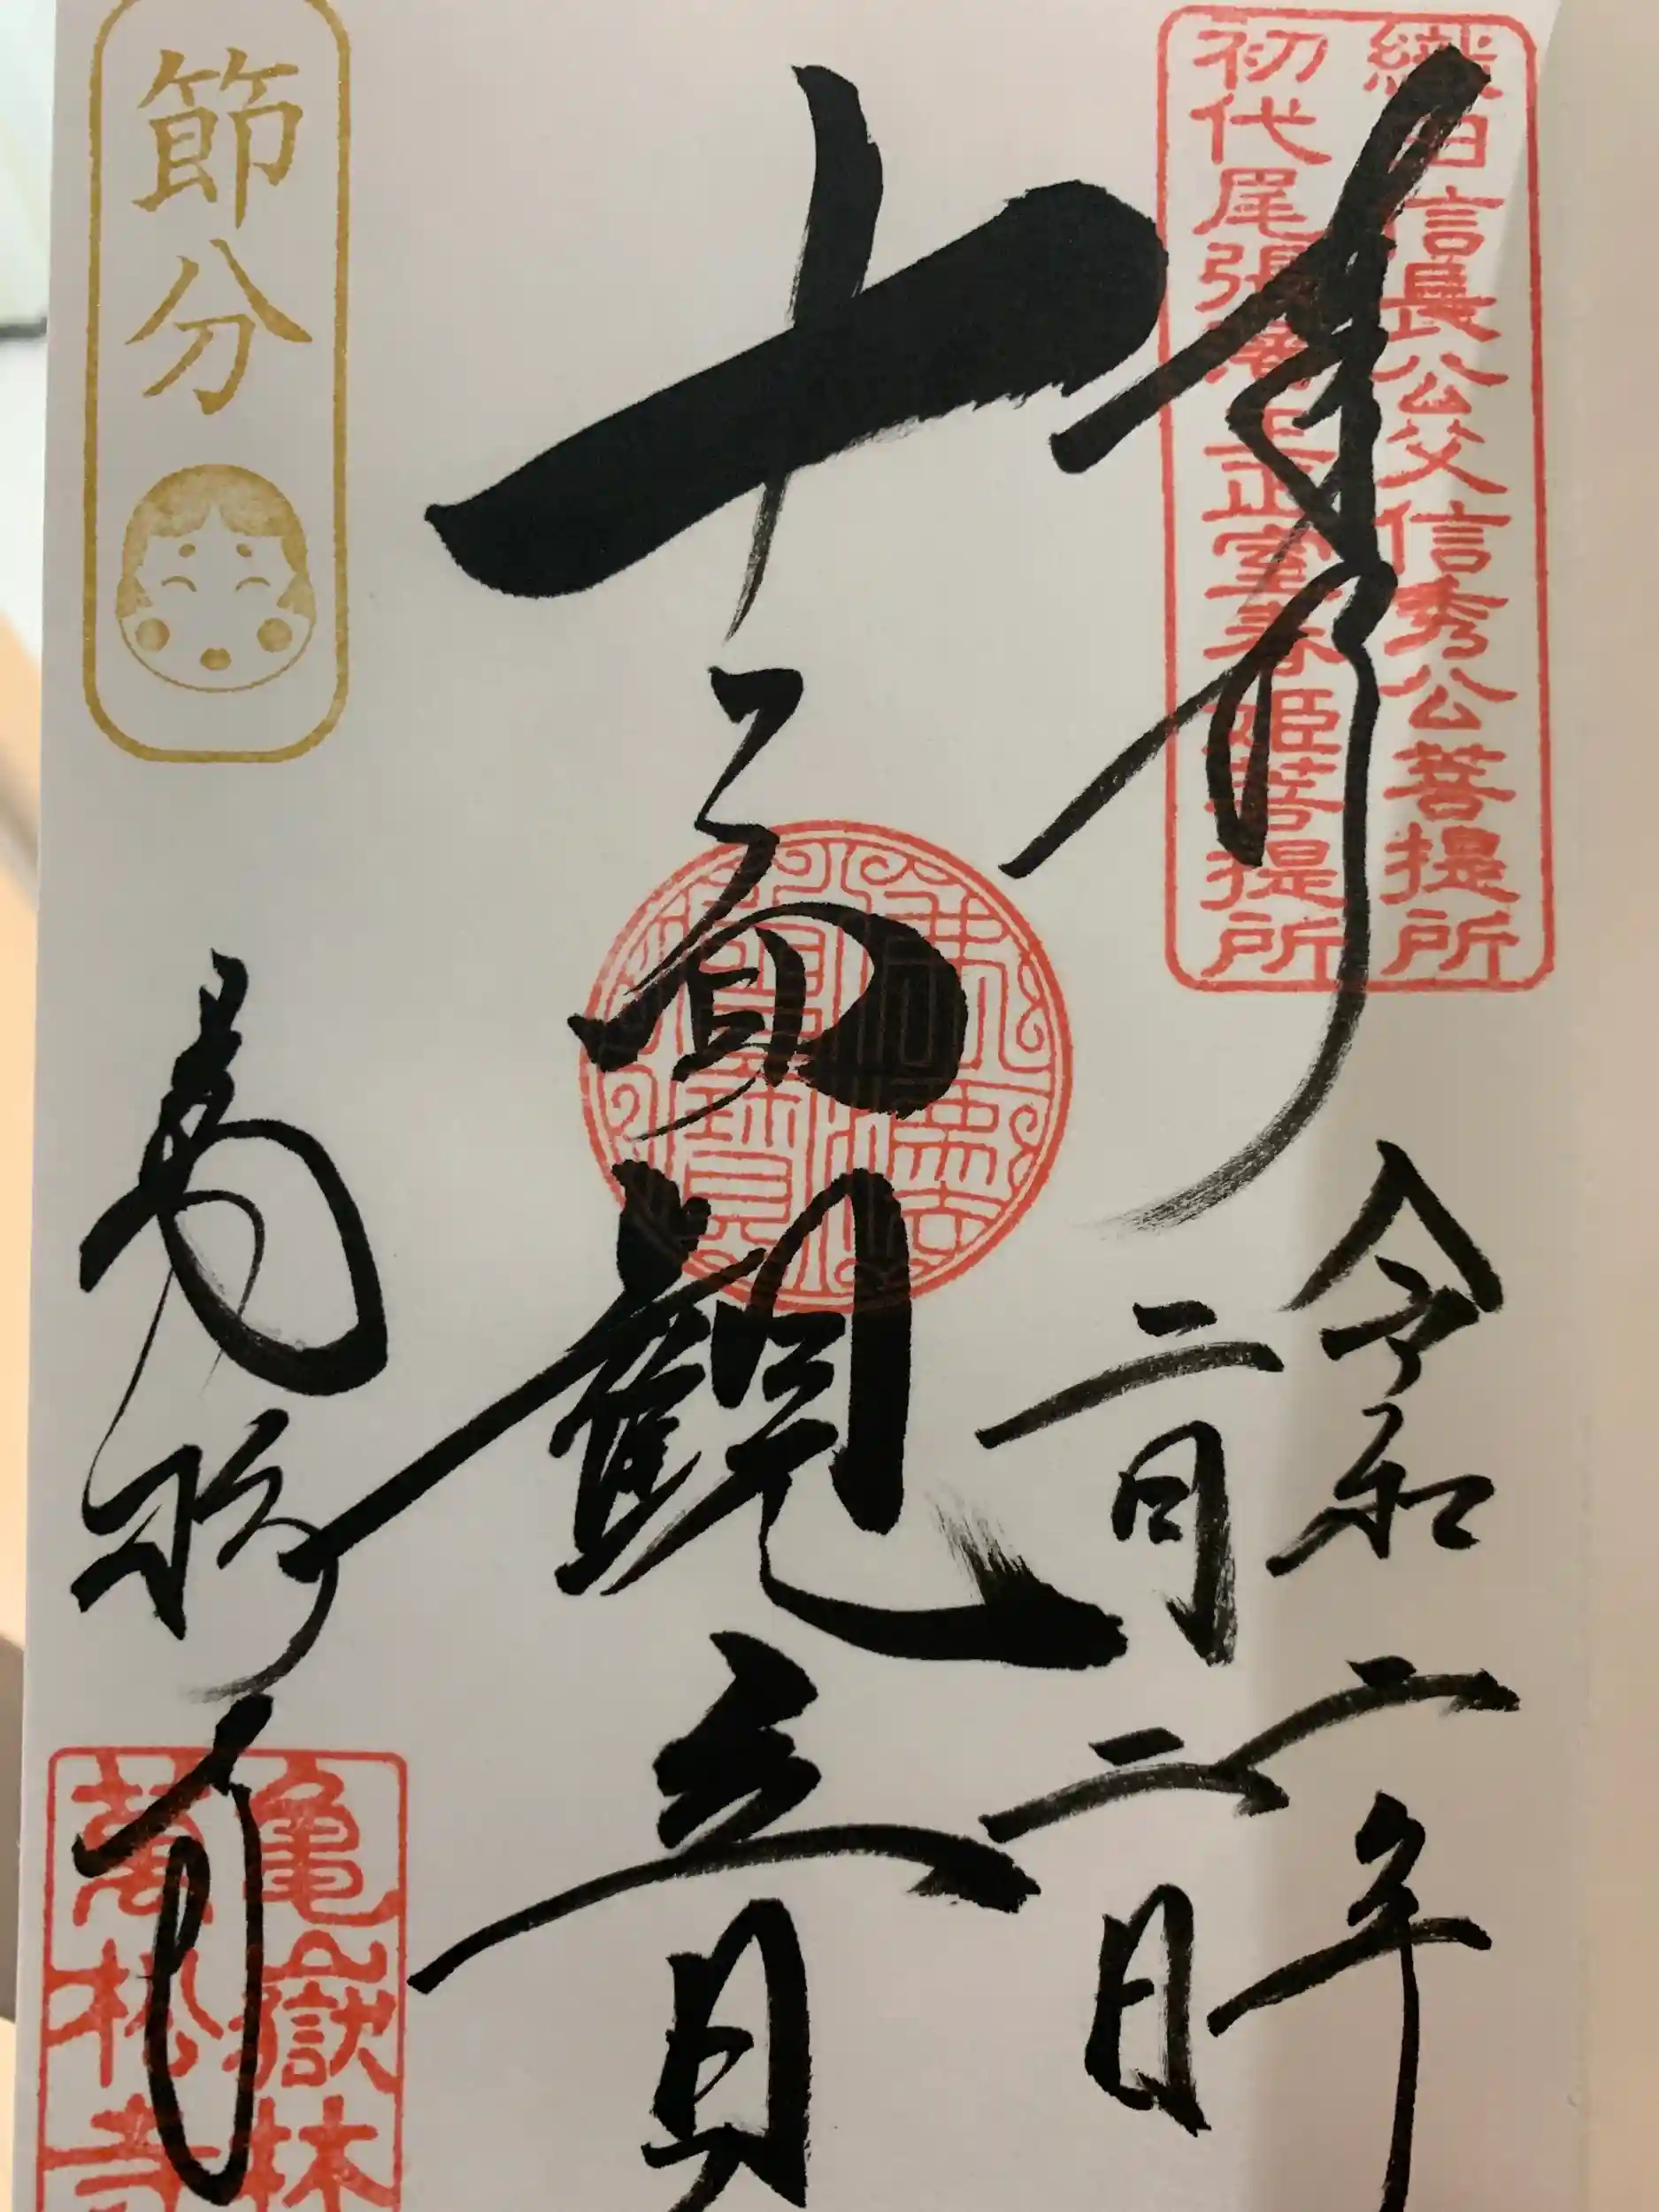 織田信長公父信秀公菩提所
初代尾張藩主正室春姫菩提所
奉拝
令和二年
二月二日
十一面観音
佛法僧寶
萬松寺
亀嶽林
萬松寺
節分